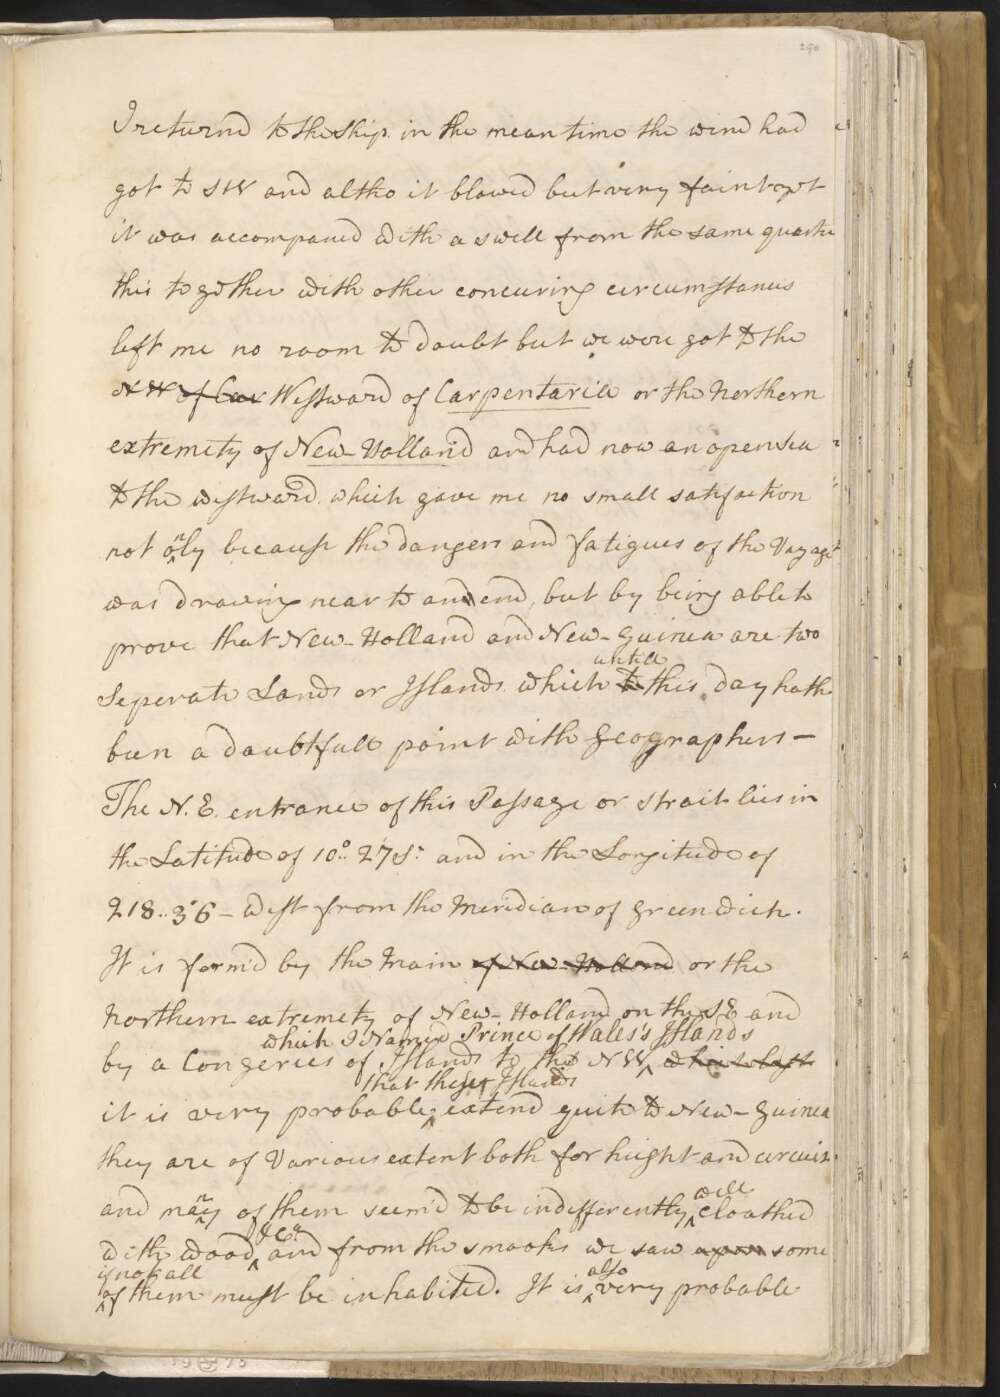 290
I returnd to the Ship. in the mean time the wind had
got to SW and altho it blowed but very faint yet
it was accompaned with a swell from the same quarter
this together with other concuring circumstances
left me no room to doubt but we were got to the
N W of Car Westward of Carpentaria or the Northern
extremety of New-Holland and had now an open Sea
to the westward, which gave me no small satisfaction
not only because the dangers and fatigues of the Voyage
was drawing near to an end, but by being able to
prove that New-Holland and New-Guinea are two
untill
Seperate Lands or Islands, which to this day hath
been a doubtfull point with Geographers—
The N.E. entrance of this Passage or strait lies in
the Latitude of 10°.. 27' S: and in the Longitude of
218..36' – West from the Meridian of Greenwich.
It is form'd by the Main of New-Holland or the
northern extremety of New-Holland on the SE and
which I Named Prince of Wales's Islands
by a Congeries of Islands to the NW, which last
that these Islands
it is very probable extend quite to New-Guinea
they are of Various extent both for height and circuit
well
and many of them seem'd to be indifferently cloathed
with wood, and from the smooks we saw upon some
if not all also
of them must be inhabited. It is very probable